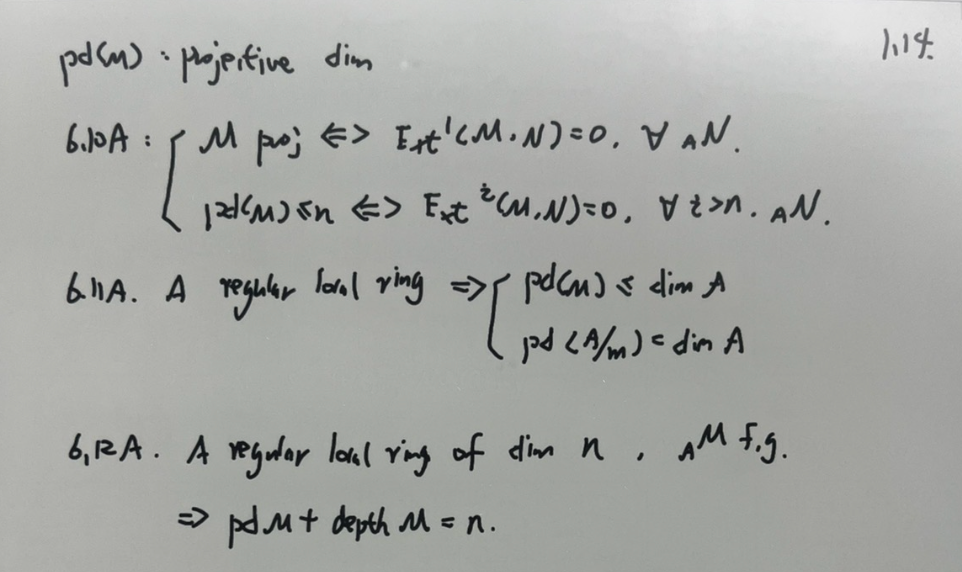 1.14.
pd(M) : projeitive dim
6.10A : { M proj <=> Ext¹(M.N)=0. ∀ ₐN.
pd(M)≤n <=> Extⁱ(M.N)=0. ∀ i>n. ₐN.
6.11A. A regular local ring => { pd(M) ≤ dim A
pd (A/m) = dim A
6.12A. A regular local ring of dim n . ₐM f.g.
=> pd M + depth M = n.